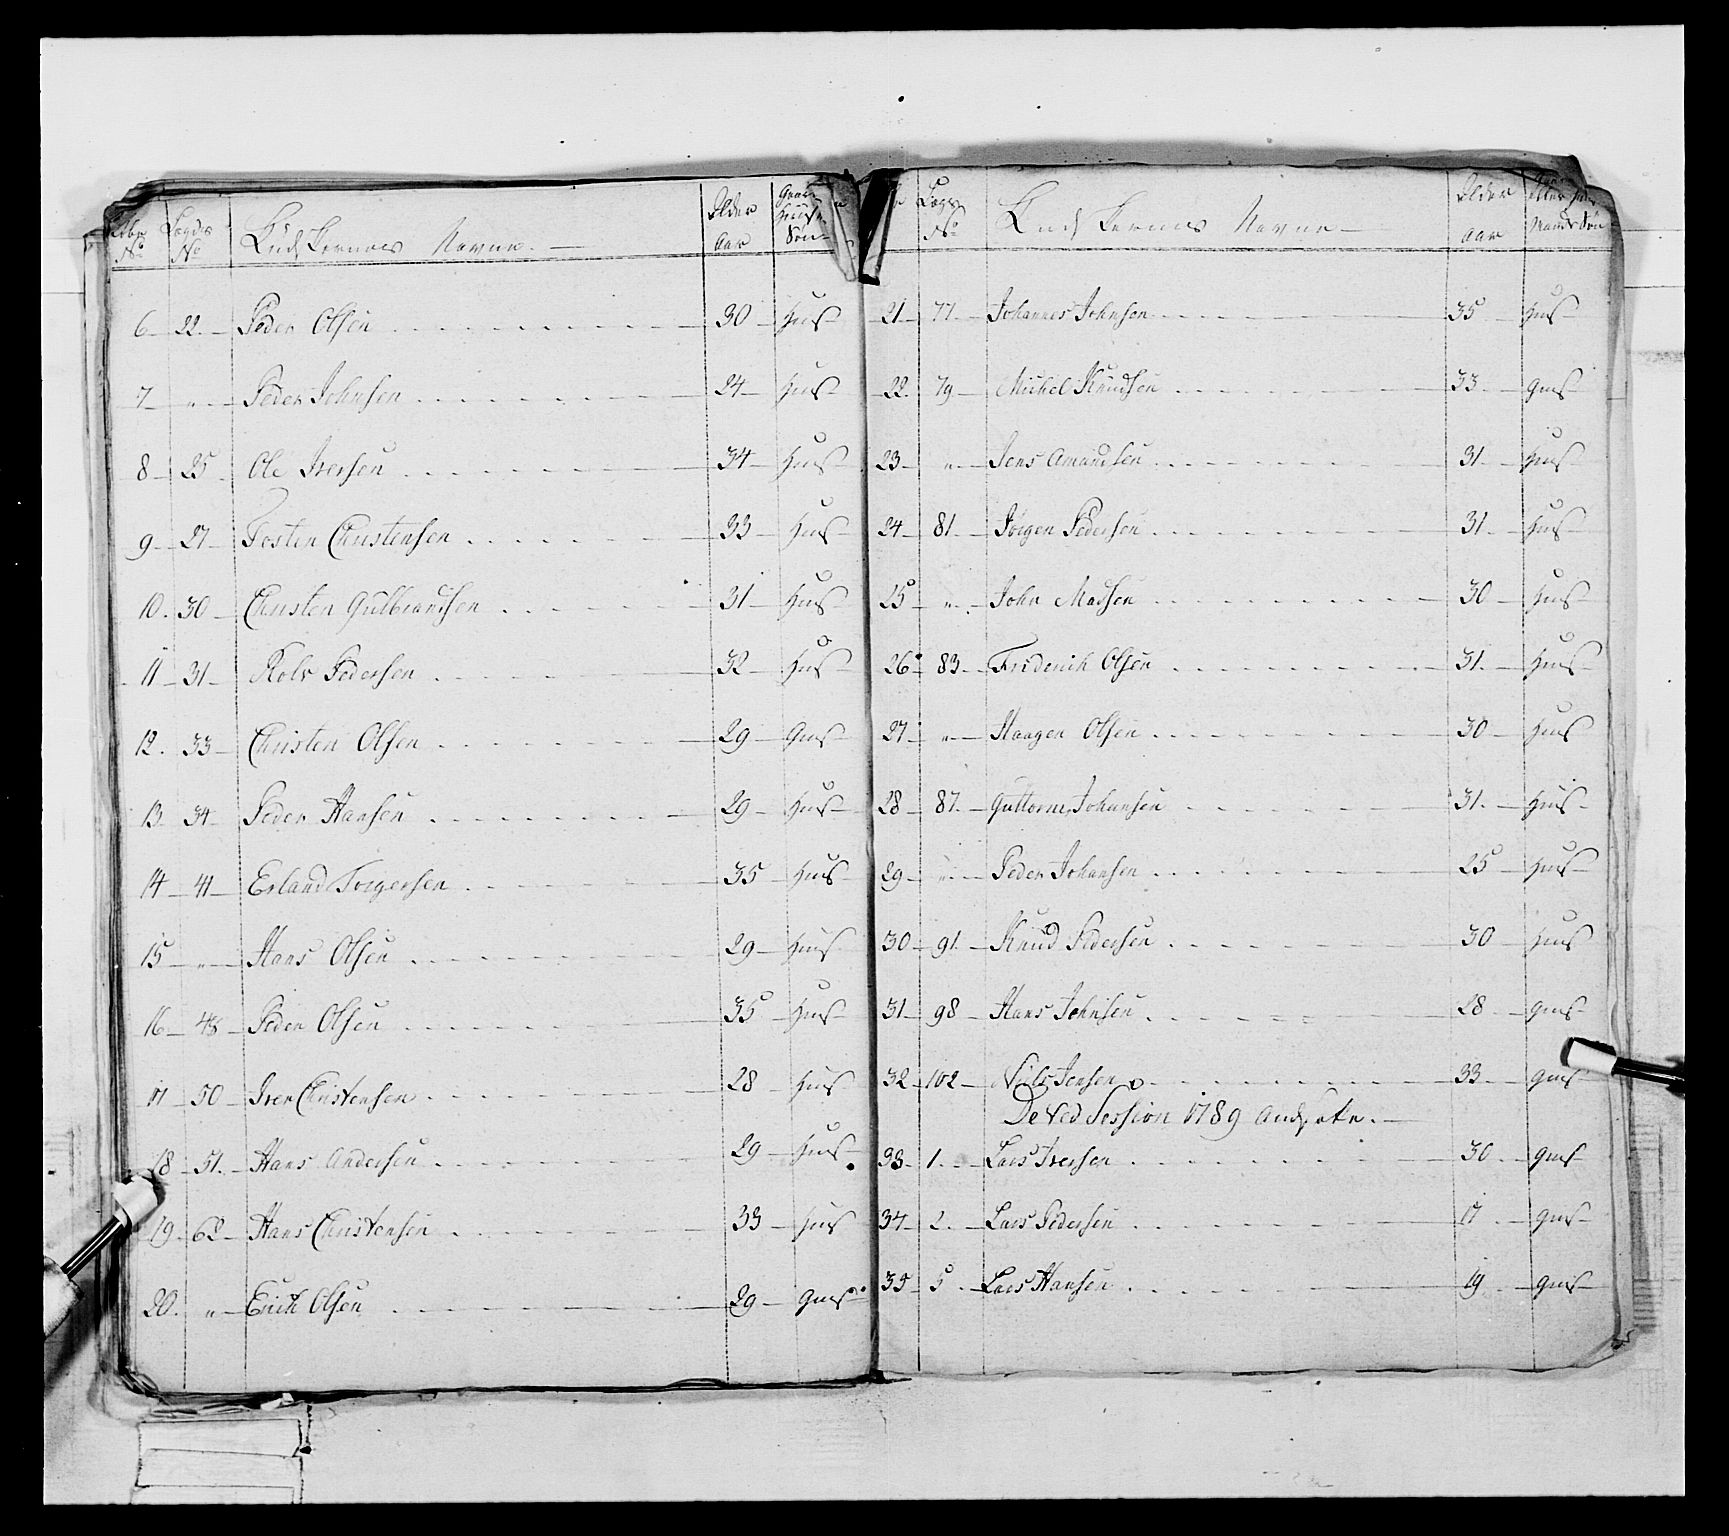 Lægds No Lands Kernes Navne. Alder Aar
6 22 Peder Olsen 30 Huus
7 " Peder Johnsen 24 Huus
8 25 Ole Iversen 34 Huus
9 27 Tosten Christensen 33 Huus
10. 30 Christen Gulbrandsen 31 Huus
11 31 Rolv Pedersen 32 Huus
12. 33 Christen Olsen 29 Gaas
13 34 Peder Hansen 29 Huus
14 41 Erland Torgersen 35 Huus
15 " Hans Olsen 29 Huus
16 48 Peder Olsen 35 Huus
17 50 Iver Christensen 28 Huus
18 51. Hans Andersen 29 Huus
19 62 Hans Christensen 33 Huus
20. " Erich Olsen 29 Gaas
Lægds No Lands Kernes Navne Alder Aar
21 77 Johannes Johnsen 35 Huus
22. 79 Michel Knudsen 33 Gaas
23 " Jens Amundsen 31 Huus
24 81. Jørgen Pedersen 31. Huus
25 " John Madsen 30 Huus
26 83 Friderich Olsen 31. Huus
27 " Haagen Olsen 30 Huus
28 87. Guttorm Johansen 31. Huus
29 " Peder Johansen 25 Huus
30 91. Knud Pedersen 30 Huus
31 98 Hans Johnsen 28 Gaas
32 102 Niels Jensen 33 Gaas
De ved Session 1789 Andsatte.
33 1. Lars Iversen 30 Gaas
34 2. Lars Pedersen 17 Gaas
35 5 Lars Hansen 19 Gaas